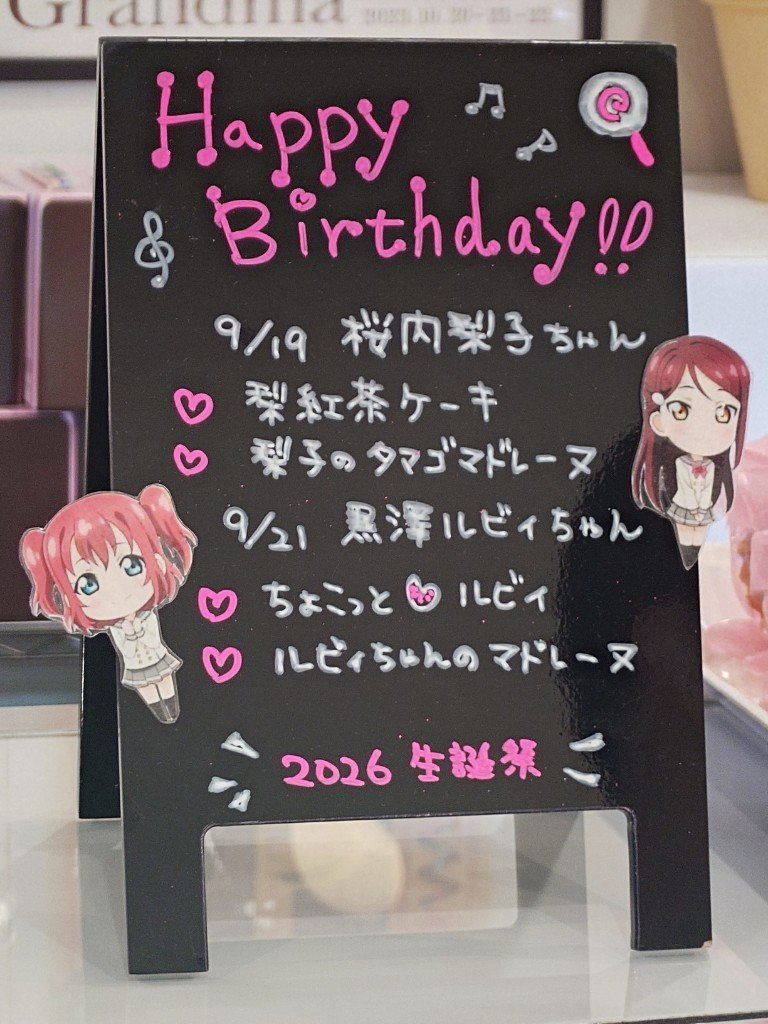 Grandma
Happy
Birthday!!
9/19 桜内梨子ちゃん
梨紅茶ケーキ
梨子のタマゴマドレーヌ
9/21 黒澤ルビィちゃん
ちょこっと♡ルビィ
ルビィちゃんのマドレーヌ
2026 生誕祭